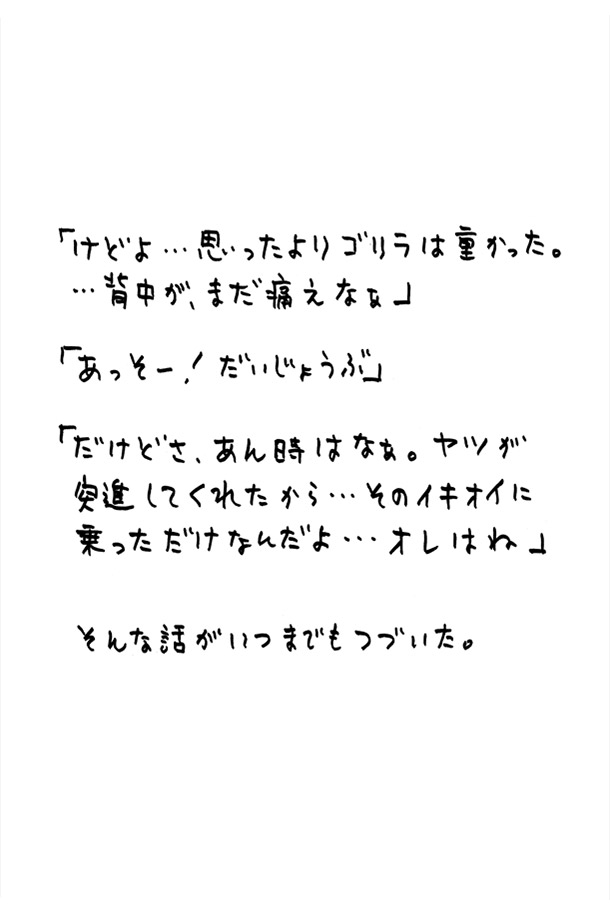 「けどよ…思ったよりゴリラは重かった。
…背中が、まだ痛えなぁ」
「あっそー！だいじょうぶ」
「だけどさ、あん時はなぁ。ヤツが
突進してくれたから…そのイキオイに
乗っただけなんだよ…オレはね」
そんな話がいつまでもつづいた。